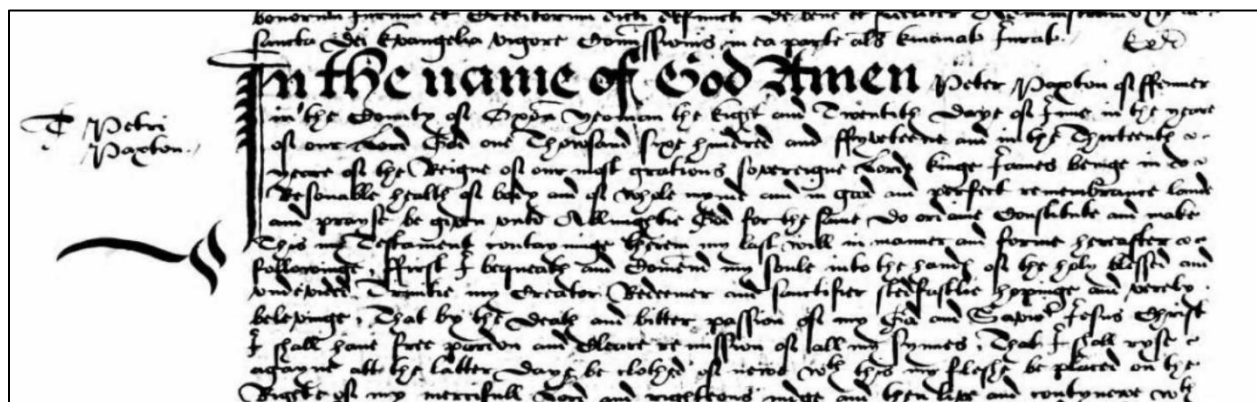 bonorum Jurium et Creditorum dicti defuncti De bene et fideliter Administrand
sancta Dei Evangelia vigore Commissionis in ea parte als emanat Jurat.
In the name of God Amen Peter Paxton of ffenner
T Petri
Paxton.
in the County of Oxon yeoman the Eight and Twentith Daye of June in the yeare
of our Lord God one Thowsand sixe hundred and ffyveteene and in the Thirteenth
yeare of the Reigne of our most gratious sovereigne Lord kinge James beinge in
Resonable health of body and of whole mynd and in good and perfect remembrance lande
and prayse be given unto Allmightie God for the same Do ordaine Constitute and make
This my Testament contayninge therein my last will in manner and forme hereafter
followinge, ffirst I bequeath and Comend my soule into the hands of the holy blessed and
undevided Trinitie my Creator Redeemer and sanctifier stedfastlie hopinge and verely
beleevinge, That by the Death and bitter passion of my God and Savior Jesus Christ
I shall have free pardon and Cleare remission of all my synnes, That I shall ryse
agayne att the latter Daye be clothed of newe wth this my fleshe be placed on the
Righte of my mercifull Lord and righteous Judge and then live and contynewe wth